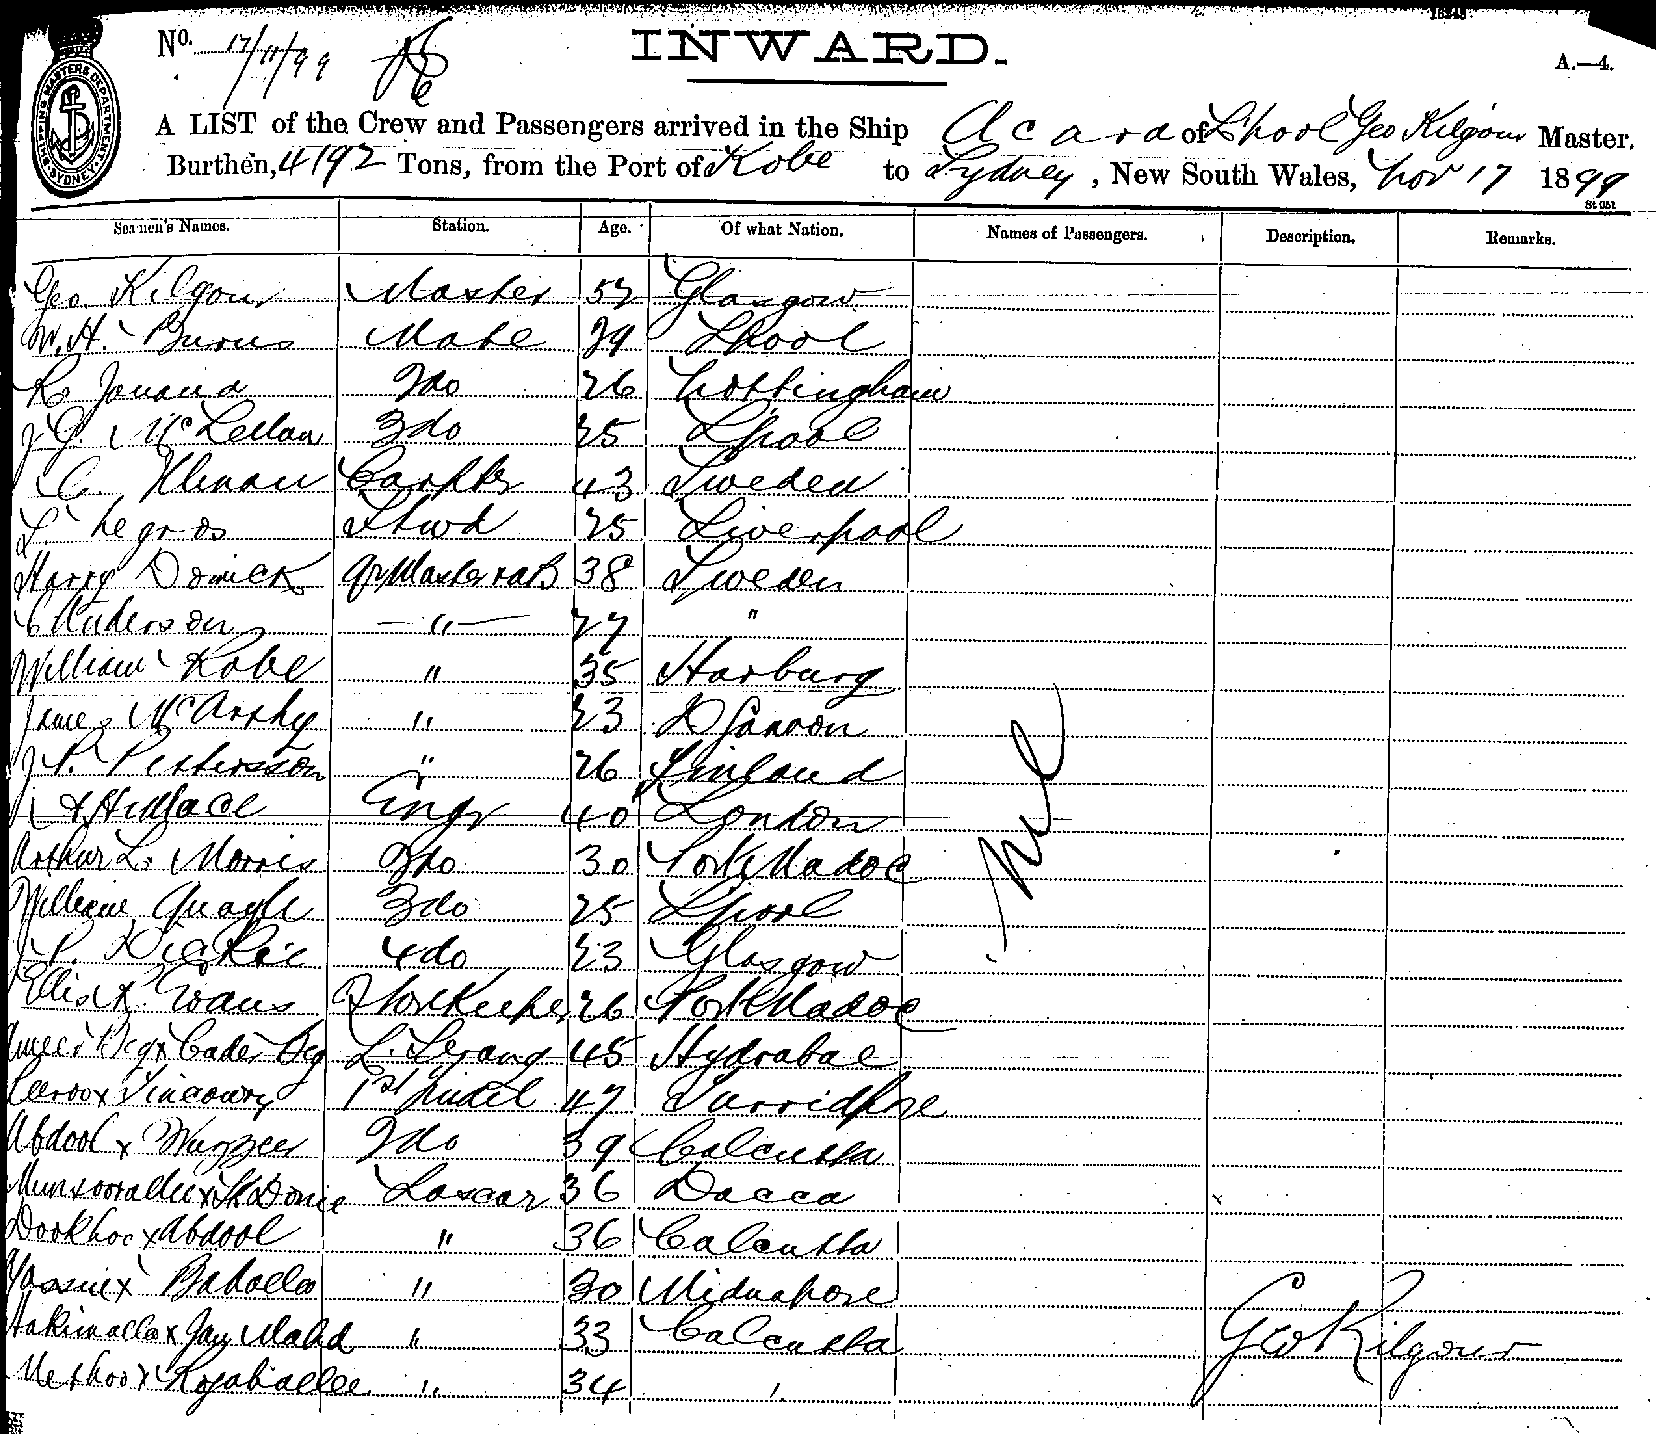 No. 17/11/99
INWARD.
A.—4.
SHIPPING MASTERS DEPARTMENT SYDNEY
A LIST of the Crew and Passengers arrived in the Ship Acara of L'pool Geo Kilgour Master.
Burthen, 4192 Tons, from the Port of Kobe to Sydney, New South Wales, Nov 17 1899
Seamen's Names. Station. Age. Of what Nation. Names of Passengers. Description. Remarks.
Geo Kilgour Master 57 Glasgow
W. H. Burns Mate 29 Lpool
2do 26 Nottingham
J G. McLellan 3do 25 Lpool
C. Carpter 43 Sweden
L. Negros Stwd 25 Liverpool
Harry Qr Master &AB 38 Sweden
C Anderson —"— 27 "
William Kobe " 35 Harburg
James McCarthy " 23
J. P. Pettersson " 26 Finland
Engr 40 London
Arthur L. Morris 2do 30 Port Madoc
William Quayle 3do 25 Lpool
J. P. Dickie 4do 23 Glasgow
Ellis R. Evans Storekeeper 26 Port Madoc
Ameer Beg x Cader Beg Serang 45 Hydrabae
x Tincowry 1st Tindel 47 Furridpore
Abdool x Wuzzeer 2do 39 Calcutta
Munsoorallee x Lascar 36 Dacca
Dookhoe x Abdool " 36 Calcutta
Yassin x " 30 Midnapore
Hakimolla x Jan Mahd " 33 Calcutta
x Rojaballee " 34 "
Nil
Geo Kilgour